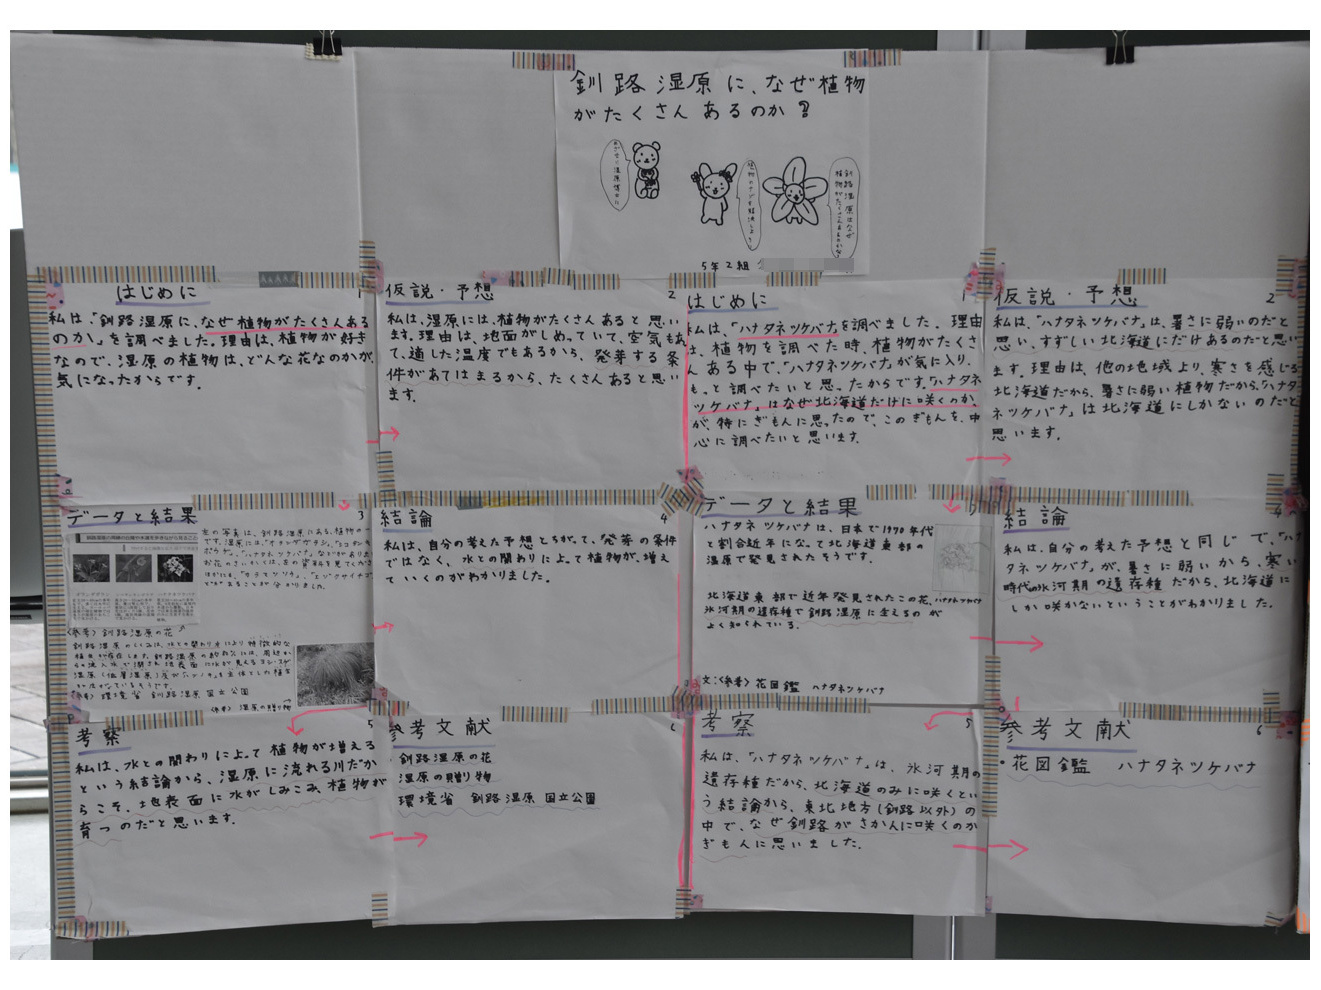 釧路湿原に、なぜ植物
がたくさんあるのか?
植物のナゾを解決しよう!
釧路湿原はなぜ
植物がたくさんあるのかな
5年2組
はじめに
1
私は、「釧路湿原に、なぜ植物がたくさんある
のか。」を調べました。理由は、植物が好き
なので、湿原の植物は、どんな花なのかが、
気になったからです。
仮説・予想
2
私は、湿原には、植物がたくさんあると思い
ます。理由は、地面がしめっていて、空気もあっ
て、適した温度でもあるから、発芽する条
件があてはまるから、たくさんあると思い
ます。
データと結果
3
左の写真は、釧路湿原にある、植物の
〈参考〉釧路湿原の花
釧路湿原のしくみは、水との関わりにより特徴的な
〈参考〉環境省 釧路湿原国立公園
〈参考〉湿原の贈り物
結論
4
私は、自分の考えた予想とちがって、発芽の条件
ではなく、水との関わりによって植物が、増え
ていくのがわかりました。
考察
5
私は、水との関わりによって植物が増える
という結論から、湿原に流れる川だか
らこそ、地表面に水がしみこみ、植物が
育つのだと思います。
参考文献
6
釧路湿原の花
湿原の贈り物
環境省 釧路湿原国立公園
はじめに
1
私は、「ハナタネツケバナ」を調べました。理由
は、植物を調べた時、植物がたくさ
んある中で、「ハナタネツケバナ」が気に入り、
もっと調べたいと思ったからです。「ハナタネ
ツケバナ」はなぜ北海道だけに咲くのか、
が、特にぎもんに思ったので、このぎもんを、中
心に調べたいと思います。
仮説・予想
2
私は、「ハナタネツケバナ」は、暑さに弱いのだと
思い、すずしい北海道にだけあるのだと思い
ます。理由は、他の地域より、寒さを感じる
北海道だから、暑さに弱い植物だから、「ハナタ
ネツケバナ」は北海道にしかないのだと
思います。
データと結果
3
ハナタネツケバナは、日本で1990年代
と割合近年になって北海道東部の
湿原で発見されたそうです。
ハナタネツケバナ
北海道東部で近年発見されたこの花、
氷河期の遺存種で釧路湿原に生えるのが
よく知られている。
文:〈参考〉花図鑑 ハナタネツケバナ
結論
4
私は、自分の考えた予想と同じで、「ハナ
タネツケバナ」が、暑さに弱いから、寒い
時代の氷河期の遺存種だから、北海道に
しか咲かないということがわかりました。
考察
5
私は、「ハナタネツケバナ」は、氷河期の
遺存種だから、北海道のみに咲くとい
う結論から、東北地方(釧路以外)の
中で、なぜ釧路がさかんに咲くのか
ぎもんに思いました。
参考文献
6
・花図鑑 ハナタネツケバナ